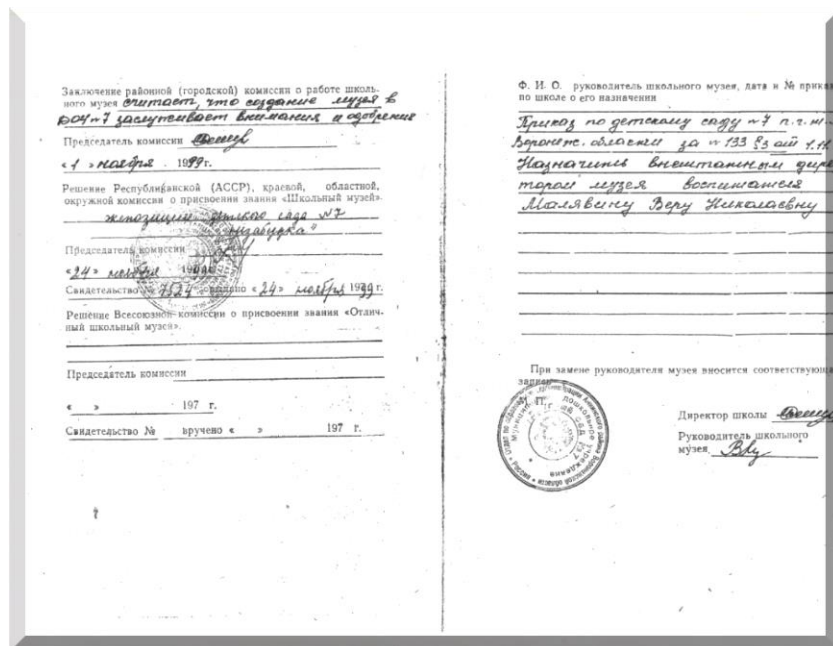 Заключение районной (городской) комиссии о работе школь-
ного музея считает, что создание музея в
ДОУ №7 заслуживает внимания и одобрения
Председатель комиссии
«1» ноября 1999 г.
Решение Республиканской (АССР), краевой, областной,
окружной комиссии о присвоении звания «Школьный музей»
экспозиции детского сада №7
"Незабудка"
Председатель комиссии
«24» ноября
Свидетельство № 7524 «24» ноября 1999 г.
Решение Всесоюзной комиссии о присвоении звания «Отлич-
ный школьный музей».
Председатель комиссии
« » 197 г.
Свидетельство № вручено « » 197 г.
Ф. И. О. руководитель школьного музея, дата и № приказ
по школе о его назначении
Приказ по детскому саду №7 п.г.т.
Воронеж. области за №133 §3 от 1.11.
Назначить внештатным дирек
тором музея воспитателя
Малявину Веру Николаевну
При замене руководителя музея вносится соответствующа
запись
М. П.
Директор школы
Руководитель школьного
музея